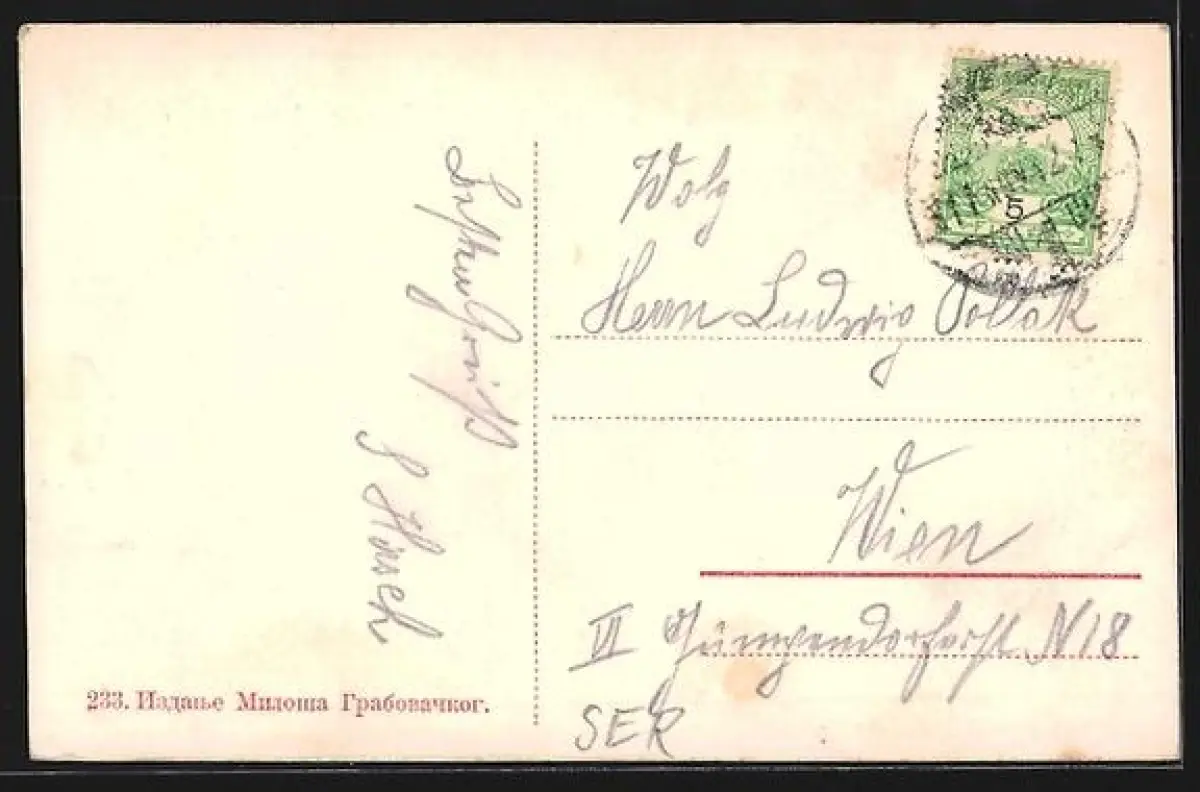 Besten Gruß
S Hirsch
233. Издање Милоша Грабовачког.
5
Wolg
Herrn Ludwig Pollak
Wien
VI Gumpendorferst. N 18
SER